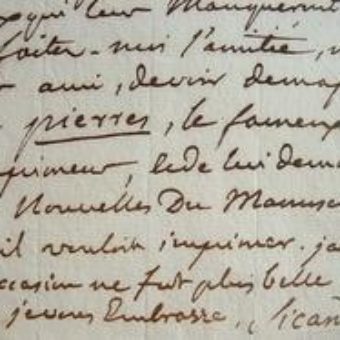 qui leur Manquerait
faites-moi l'amitié,
ami, devoir dema
pierres, le fameux
primeur, et de lui dema
Nouvelles Du Manusc
il vouloit imprimer. ja
ccasion ne fut plus belle
jevous Embrasse,